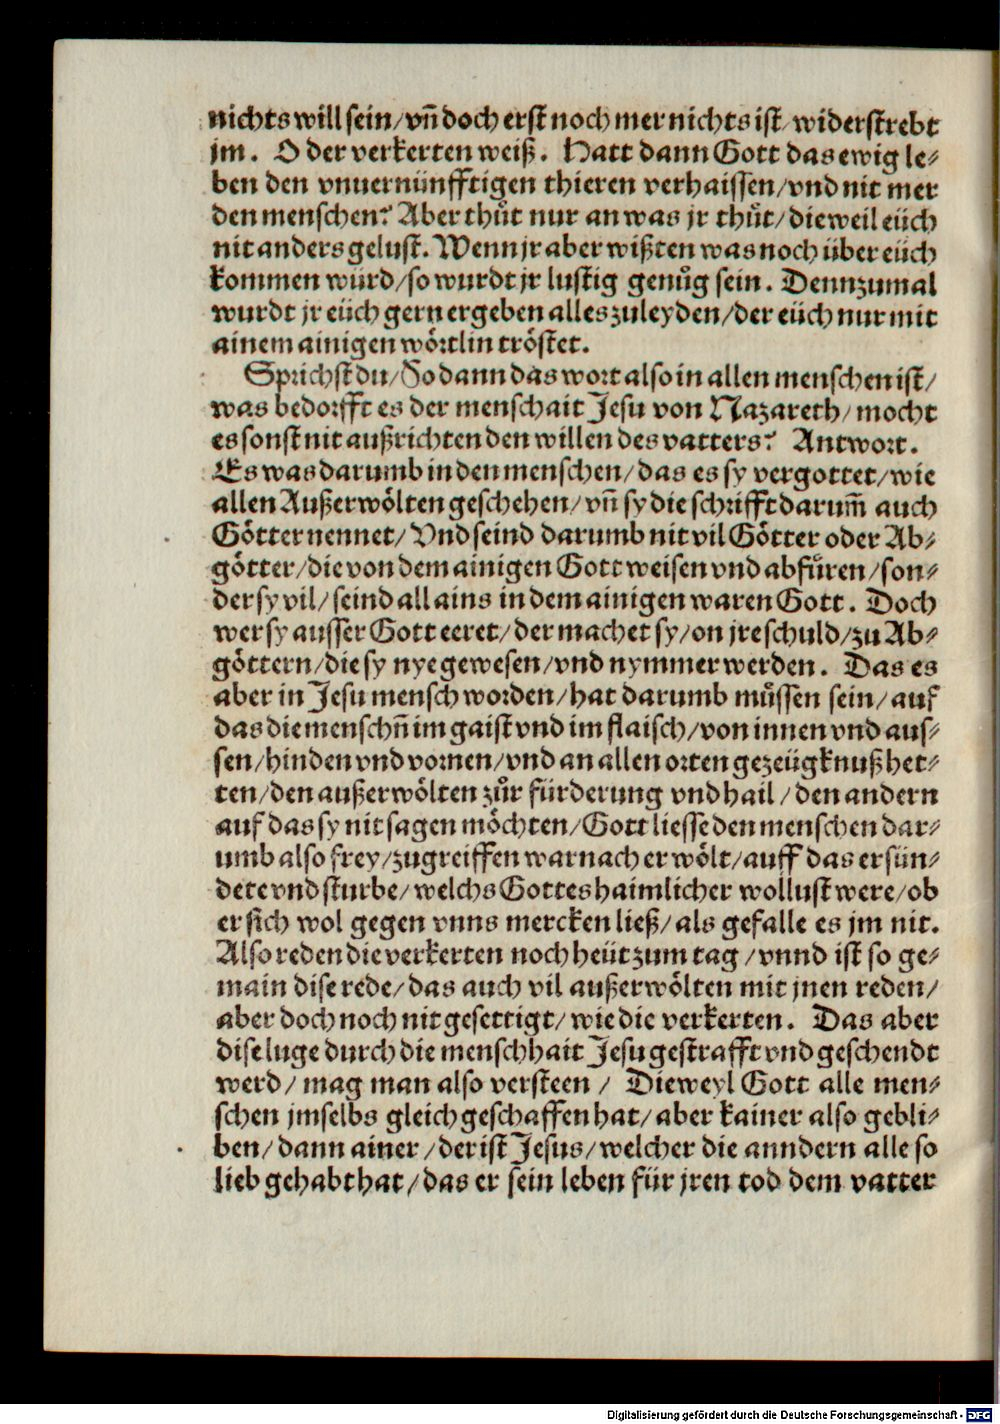 nichts will sein/ vñ doch erst noch mer nichts ist/ widerstrebt
jm. O der verkerten weiß. Hatt dann Gott das ewig le⸗
ben den vnuernünfftigen thieren verhaissen/ vnd nit mer
den menschen? Aber thuͦt nur an was jr thuͦt/ dieweil eüch
nit anders gelust. Wenn jr aber wißten was noch über eüch
kommen würd/ so wurdt jr lustig genuͦg sein. Dennzumal
wurdt jr eüch gern ergeben alles zuleyden/ der eüch nur mit
ainem ainigen wörtlin tröstet.
Sprichst du/ So dann das wort also in allen menschen ist/
was bedorfft es der menschait Jesu von Nazareth/ mocht
es sonst nit außrichten den willen des vatters? Antwort.
Es was darumb in den menschen/ das es sy vergottet/ wie
allen Außerwölten geschehen/ vñ sy die schrifft darum̃ auch
Götter nennet/ Vnd seind darumb nit vil Götter oder Ab⸗
götter/ die von dem ainigen Gott weisen vnd abfuͤren/ son⸗
der sy vil/ seind all ains in dem ainigen waren Gott. Doch
wer sy ausser Gott eeret/ der machet sy/ on jre schuld/ zu Ab⸗
göttern/ die sy nye gewesen/ vnd nymmer werden. Das es
aber in Jesu mensch worden/ hat darumb muͤssen sein/ auf
das die menschñ im gaist vnd im flaisch/ von innen vnd aus⸗
sen/ hinden vnd vornen/ vnd an allen orten gezeügknuß het⸗
ten/ den außerwölten zuͦr fürderung vnd hail/ den andern
auf das sy nit sagen möchten/ Gott liesse den menschen dar⸗
umb also frey/ zugreiffen warnach er wölt/ auff das er sün⸗
dete vnd sturbe/ welchs Gottes haimlicher wollust were/ ob
er sich wol gegen vnns mercken ließ/ als gefalle es jm nit.
Also reden die verkerten noch heüt zum tag/ vnnd ist so ge⸗
main dise rede/ das auch vil außerwölten mit jnen reden/
aber doch noch nit gesettigt/ wie die verkerten. Das aber
dise luge durch die menschhait Jesu gestrafft vnd geschendt
werd/ mag man also versteen/ Dieweyl Gott alle men⸗
schen jmselbs gleich geschaffen hat/ aber kainer also gebli⸗
ben/ dann ainer/ der ist Jesus/ welcher die anndern alle so
lieb gehabt hat/ das er sein leben für jren tod dem vatter
Digitalisierung gefördert durch die Deutsche Forschungsgemeinschaft - DFG